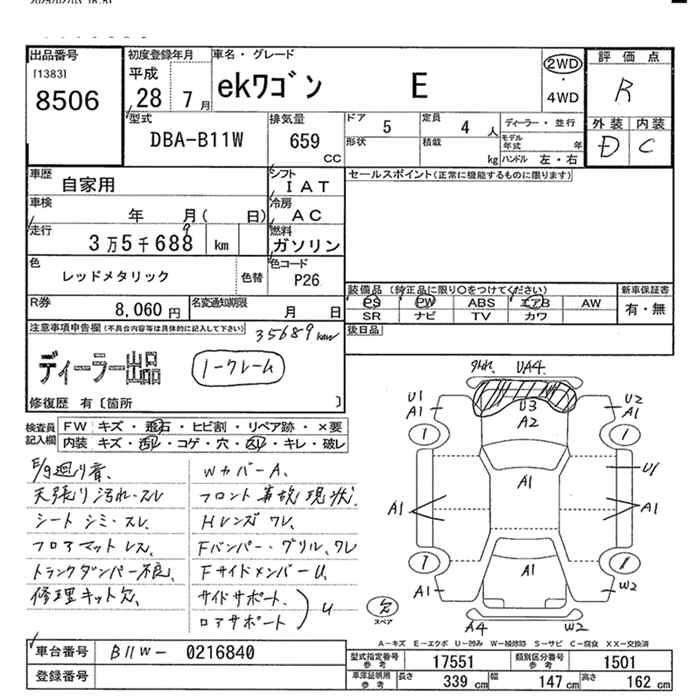 出品番号
[1383]
8506
初度登録年月
平成
28 7月
車名・グレード
ekワゴン E
2WD
・
4WD
評価点
R
外装 内装
D C
型式
DBA-B11W
排気量
659
CC
ドア
5
定員
4 人
形状
積載
kg
ディーラー・並行
モデル年式 年
ハンドル 左・右
車歴
自家用
シフト
IAT
セールスポイント(正常に機能するものに限ります)
車検
年 月( 日)
冷房
AC
走行
3万5千688 km
9
燃料
ガソリン
色
レッドメタリック
色替
色コード
P26
R券
8,060 円
名変通知期限
月 日
装備品(純正品に限り○をつけてください)
PS PW ABS エアB AW
SR ナビ TV カワ
新車保証書
有・無
後日品
注意事項申告欄(不具合内容等は具体的に記入して下さい)
35689km
ディーラー出品
ノークレーム
修復歴 有〔箇所 〕
検査員記入欄
FW キズ・飛石・ヒビ割・リペア跡・×要
内装 キズ・汚レ・コゲ・穴・スレ・キレ・破レ
E/g廻り音、
天張り汚れ・スレ
シート シミ・スレ
フロアマットレス、
トランクダンパー不良、
修理キット欠、
WカバーA、
フロント事故現状、
Hレンズワレ、
Fバンパー・グリル、ワレ
FサイドメンバーU、
サイドサポート、
ロアサポート
U
UA4.
U3
A2
U1
A1
U2
A1
1
1
A1
U1
A1
1
1
A1
A1
W2
A4
W2
欠
スペア
A-キズ E-エクボ U-凹み W-補修跡 S-サビ C-腐食 XX-交換済
車台番号
B11W- 0216840
登録番号
型式指定番号
参考
17551
類別区分番号
参考
1501
車庫証明用
参考
長さ
339 cm
幅
147 cm
高さ
162 cm